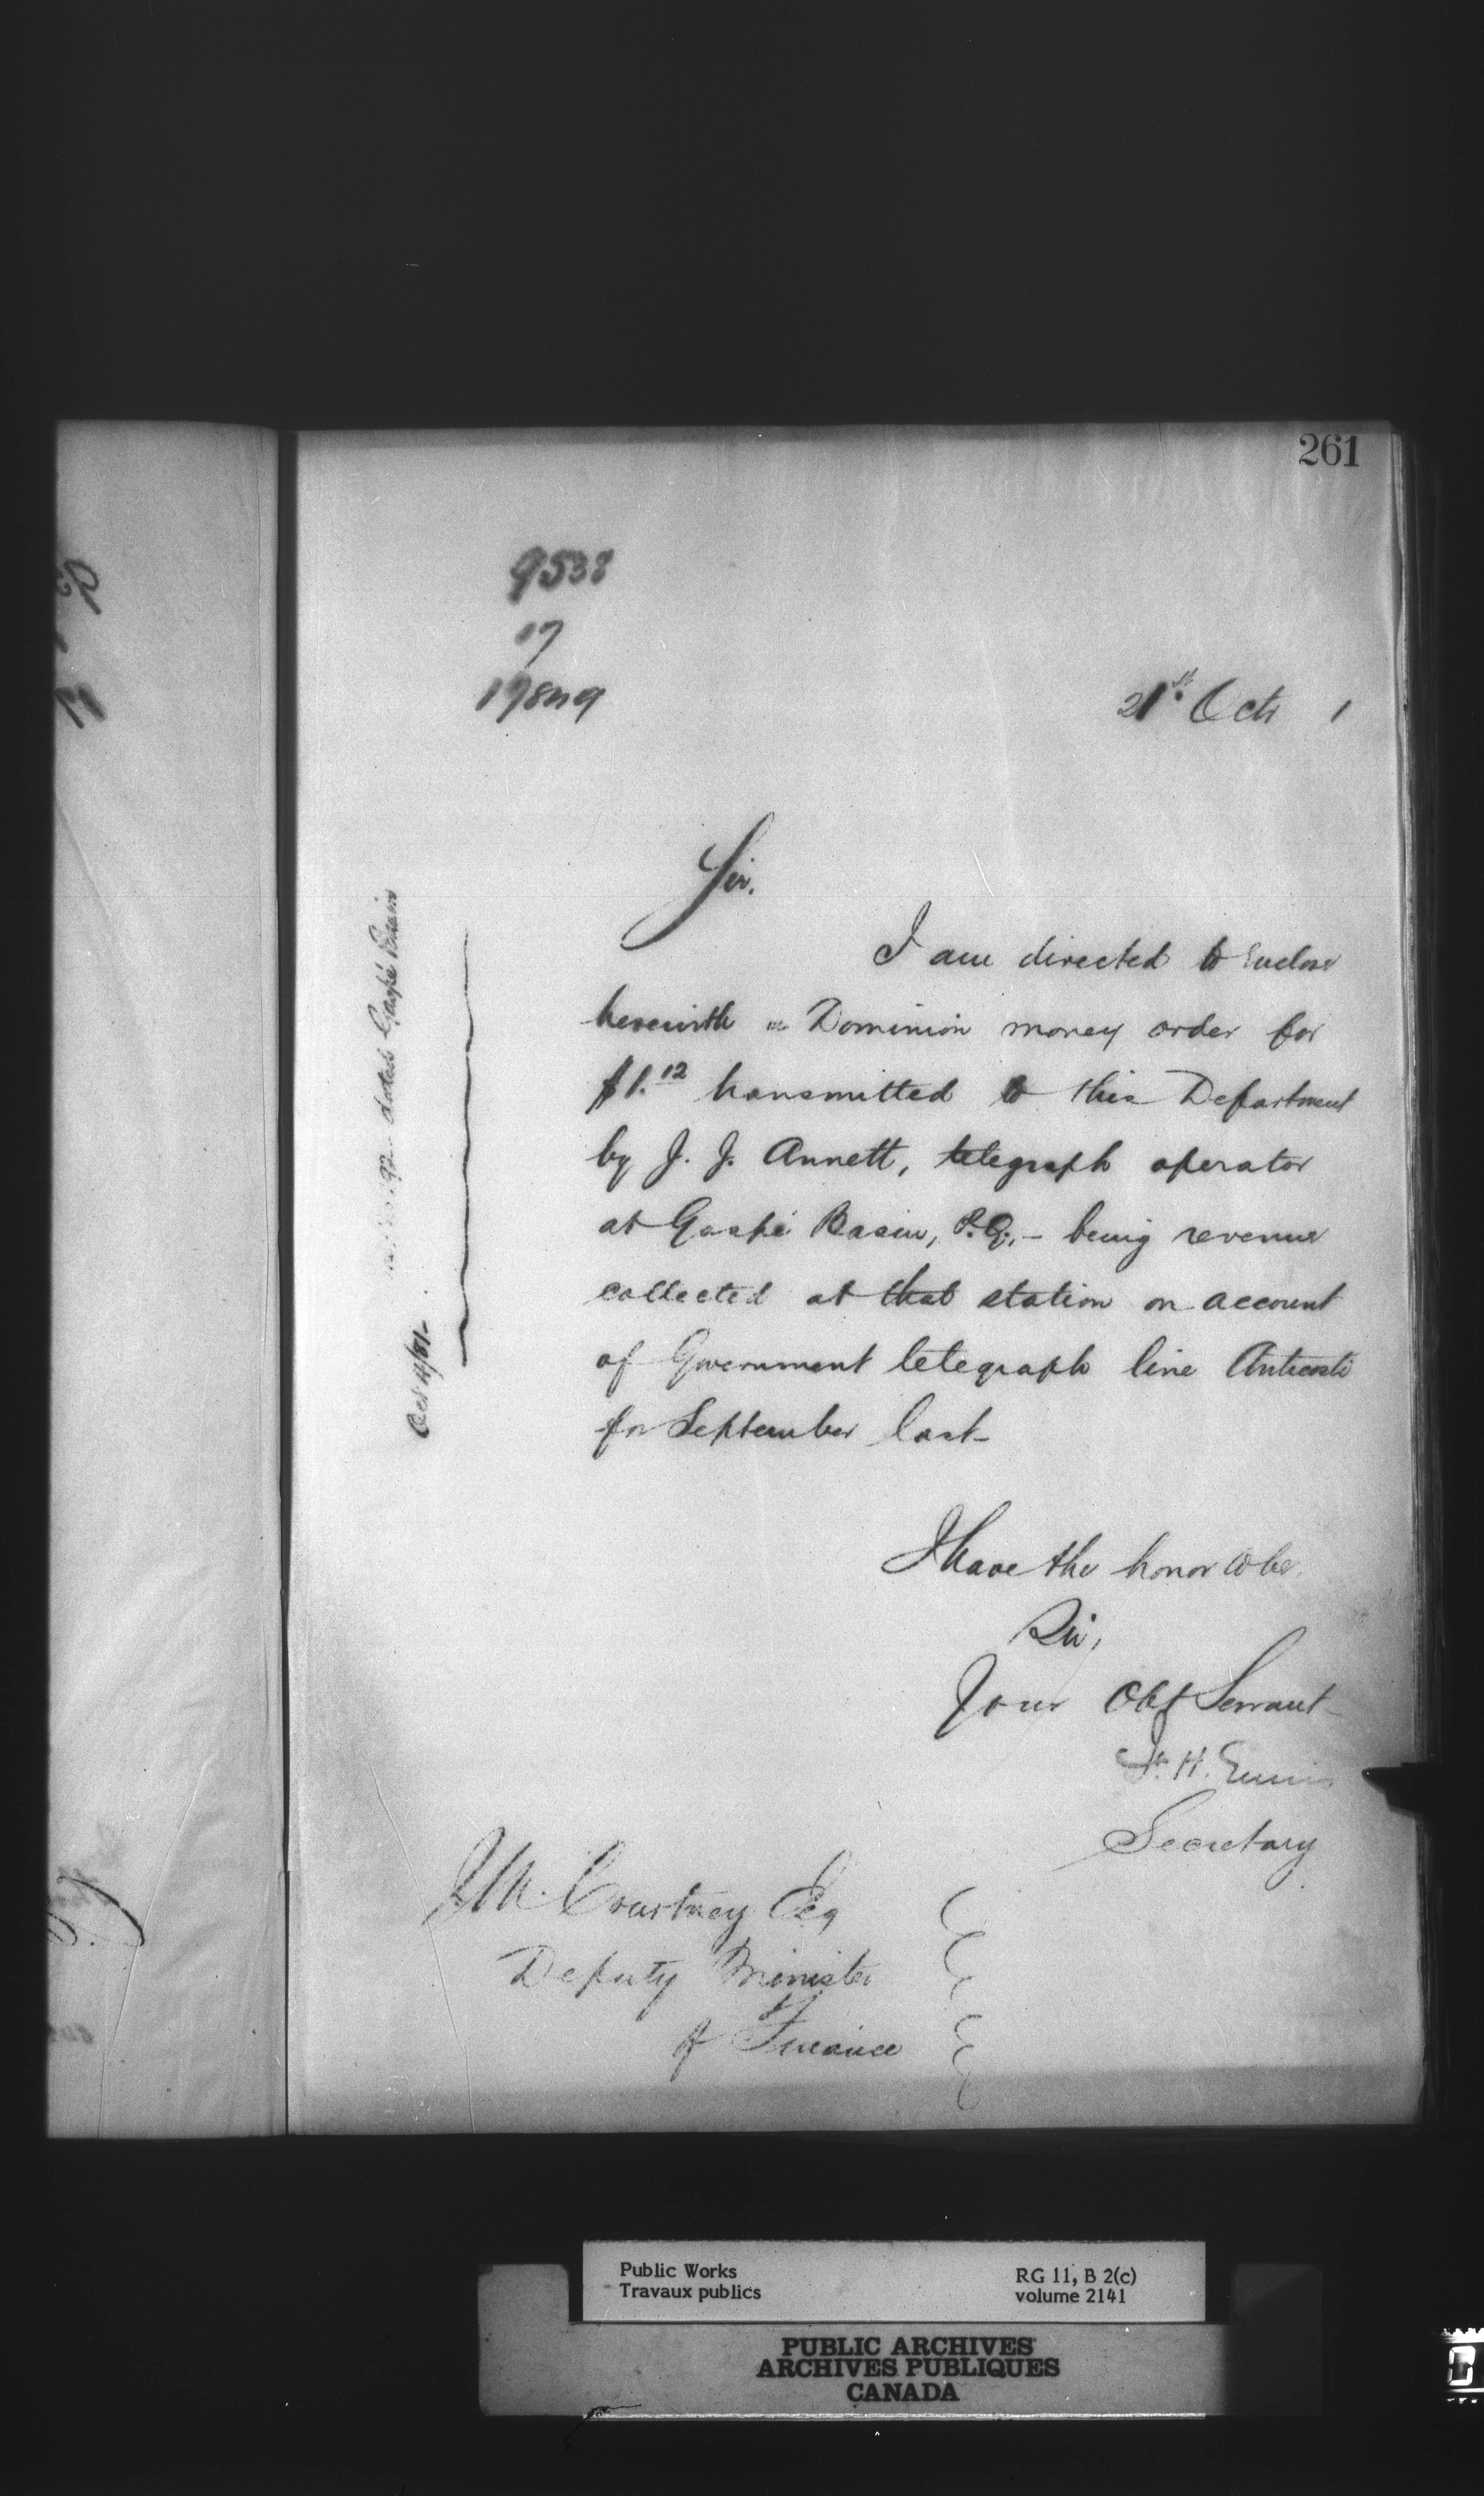 261
9538
17
17849
21st Octr 1
Sir.
I am directed to Enclose
herewith a Dominion money order for
$1.12 transmitted to this Department
by J. J. Annett, telegraph operator
at Gaspé Basin, P.Q., - being revenue
collected at that station on account
of Government telegraph line Anticosti
for September last-
I have the honor to be
Sir,
Your Obt Servant
F. H. Ennis
Secretary
J M. Courtney Esq
Deputy Minister
of Finance
dated Gaspé Basin
Oct 4/81-
Public Works
Travaux publics
RG 11, B 2(c)
volume 2141
PUBLIC ARCHIVES
ARCHIVES PUBLIQUES
CANADA